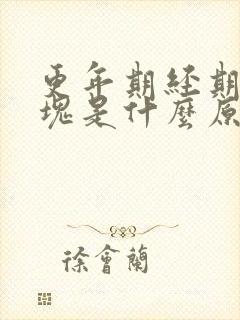 更年期經期
塊是什麼原
徐會蘭